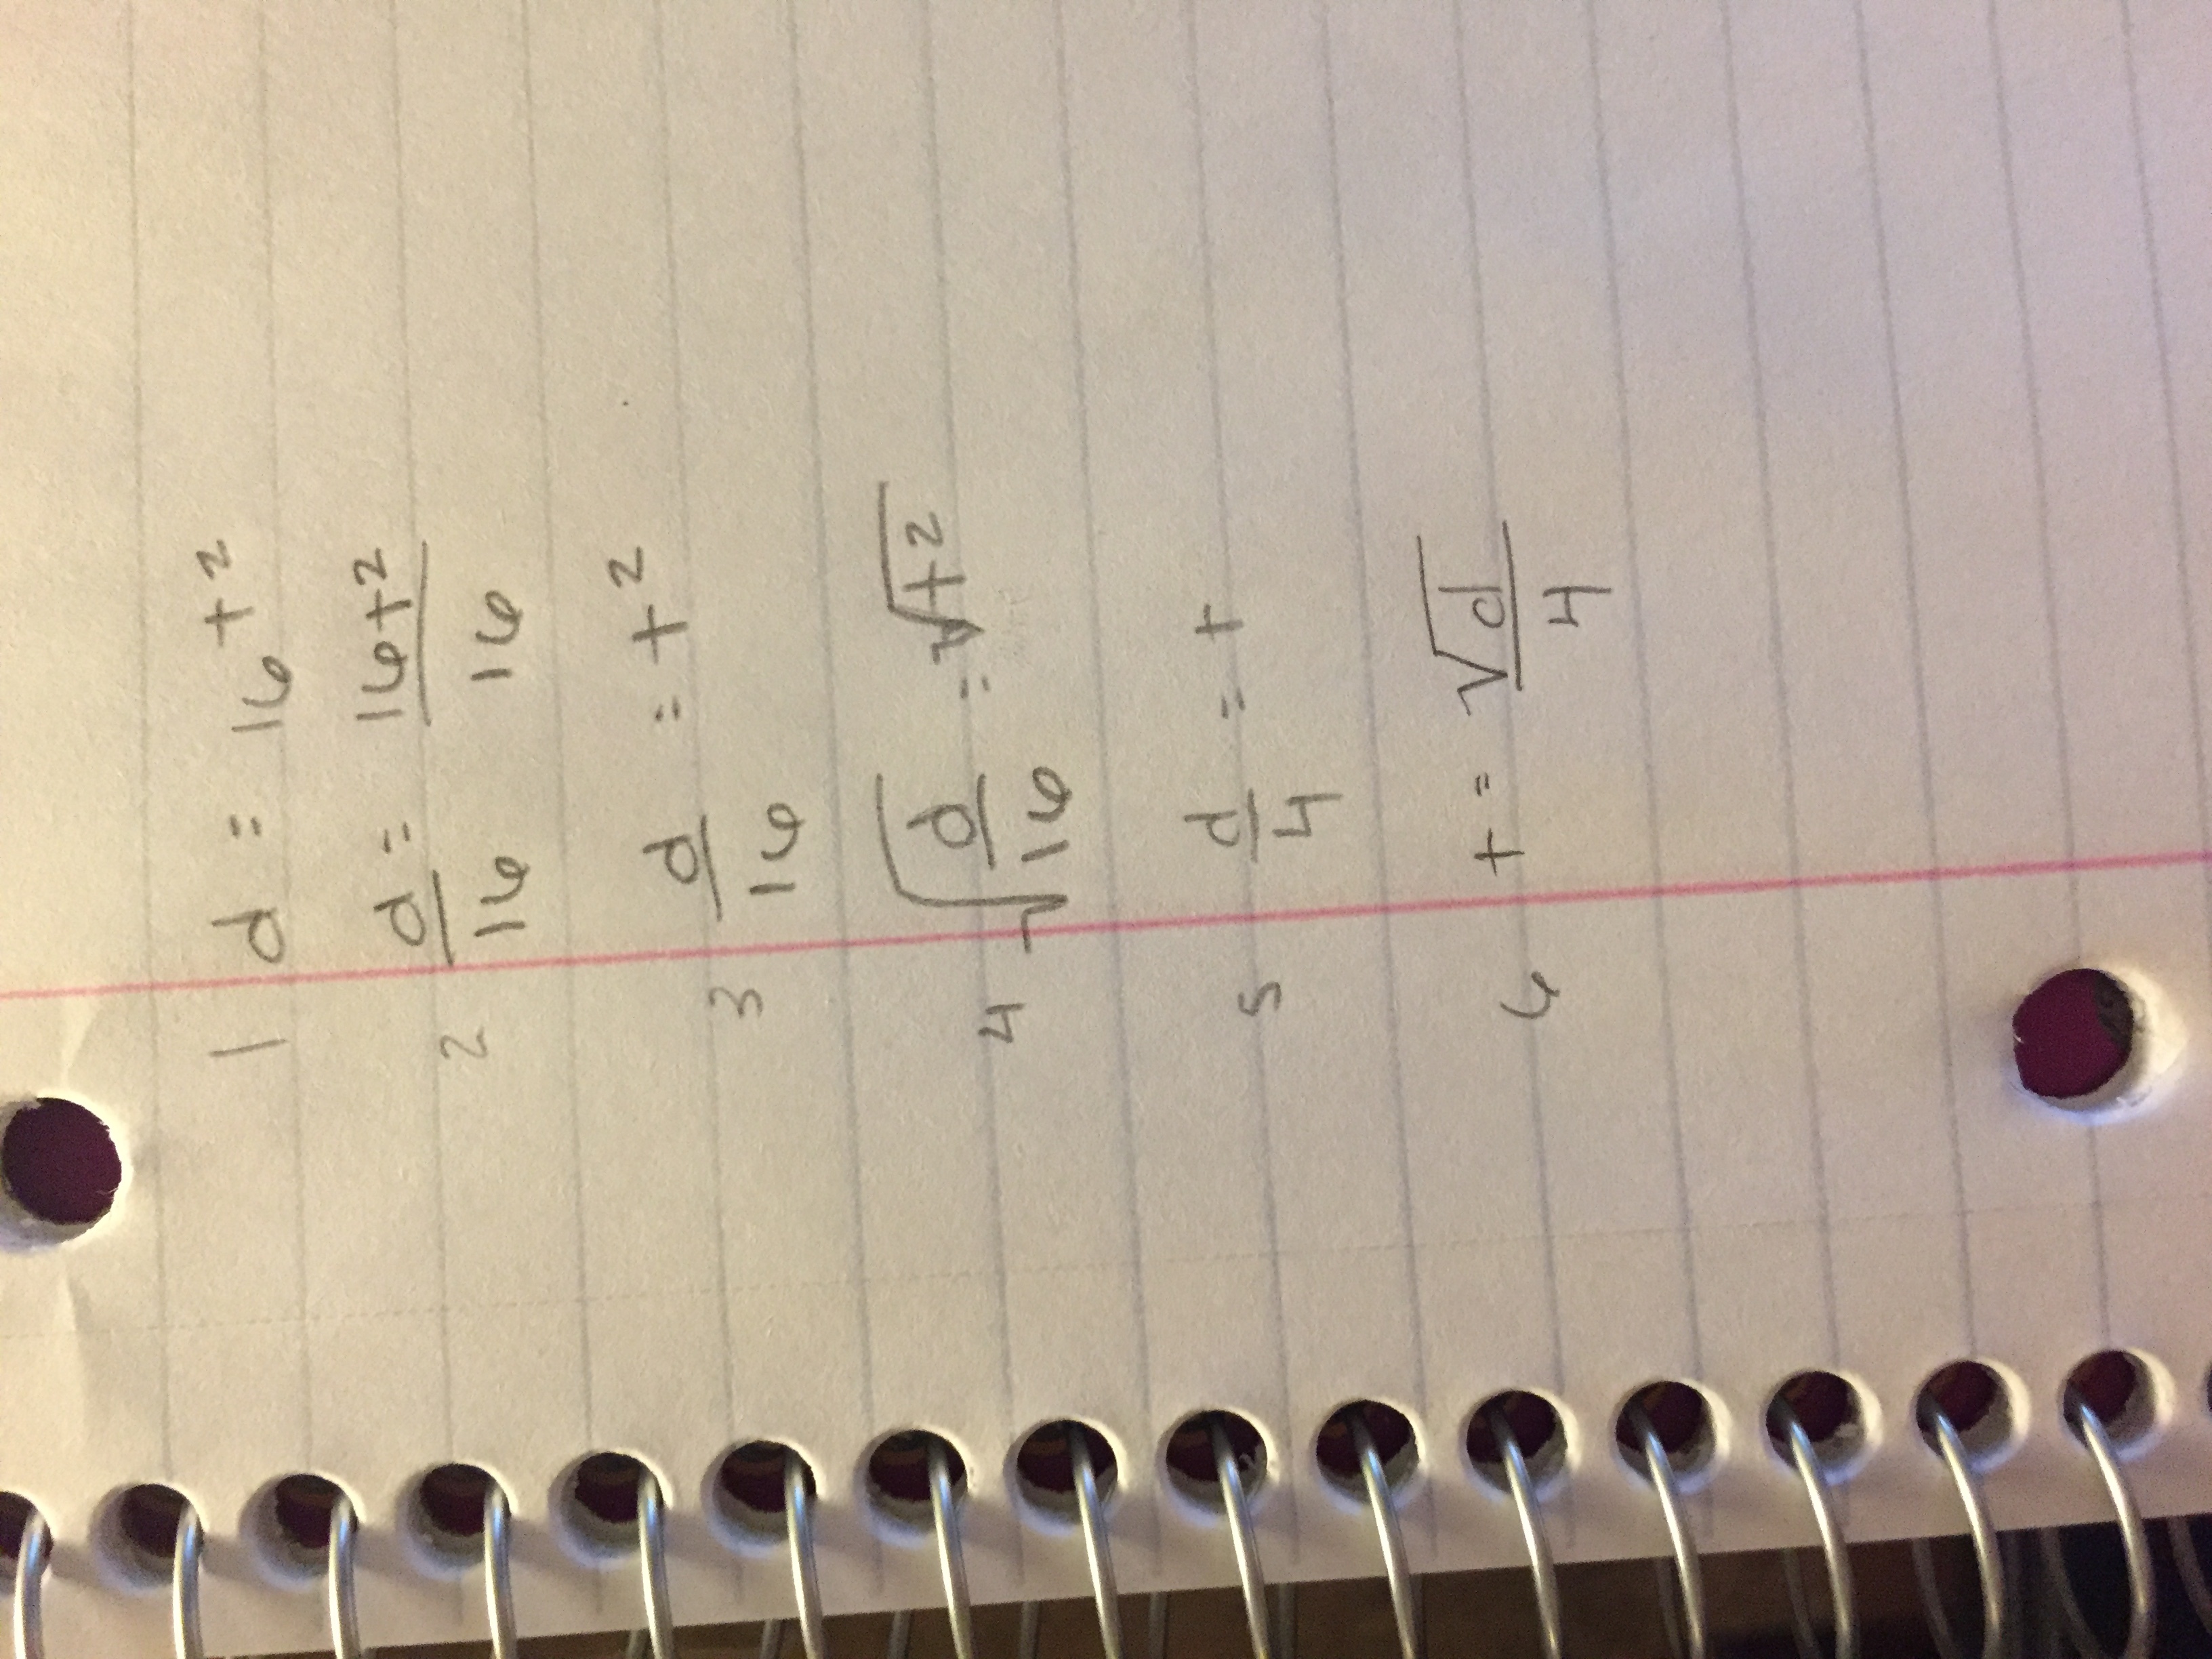 1 d = 16t²
2 d/16 = 16t²/16
3 d/16 = t²
4 √(d/16) = √t²
5 d/4 = t
6 t = √d/4